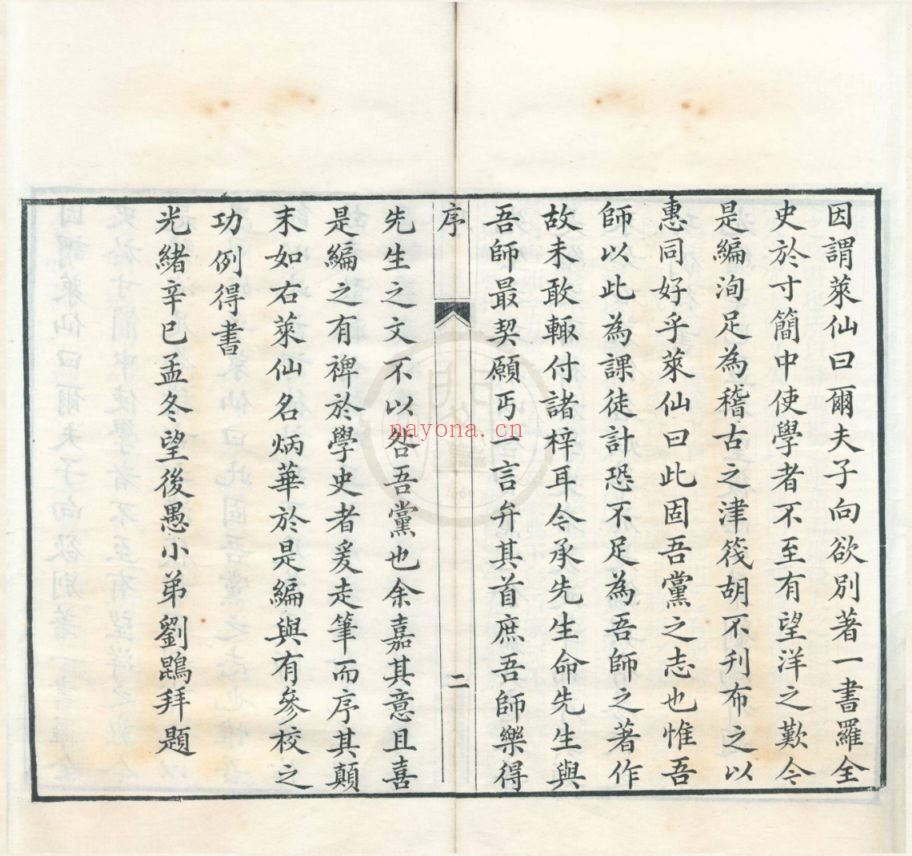 因謂萊仙曰爾夫子向欲別著一書羅全
史於寸簡中使學者不至有望洋之歎今
是編洵足為稽古之津筏胡不刊布之以
惠同好乎萊仙曰此固吾黨之志也惟吾
師以此為課徒計恐不足為吾師之著作
故未敢輒付諸梓耳今承先生命先生與
吾師最契願丐一言弁其首庶吾師樂得
序
二
先生之文不以咎吾黨也余嘉其意且喜
是編之有裨於學史者爰走筆而序其顛
末如右萊仙名炳華於是編與有參校之
功例得書
光緒辛巳孟冬望後愚小弟劉鵾拜題
nayona.cn